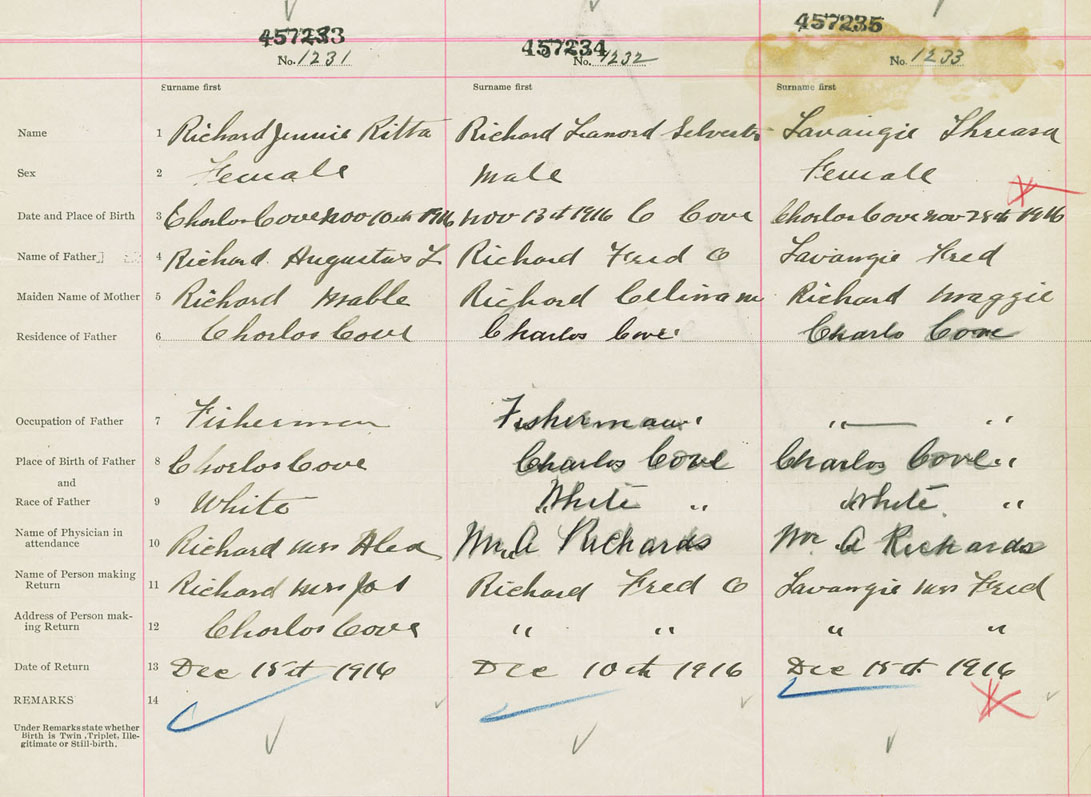 457233 457234 457235
No. 1231 No. 1232 No. 1233
Surname first Surname first Surname first
Name 1 Richard Jennie Ritta Richard Leanord Selvester Lavangie Threasa
Sex 2 Female Male Female
Date and Place of Birth 3 Charlos Cove Nov 10th 1916 Nov 13th 1916 C Cove Charlos Cove Nov 28th 1916
Name of Father 4 Richard Augustus L Richard Fred C Lavangie Fred
Maiden Name of Mother 5 Richard Mable Richard Richard Maggie
Residence of Father 6 Charlos Cove Charlos Cove Charlo Cove
Occupation of Father 7 Fisherman Fisherman " " "
Place of Birth of Father 8 Charlos Cove Charlos Cove Charlos Cove "
and
Race of Father 9 White White " White "
Name of Physician in
attendance 10 Richard Mrs Alex Mr. A Richards Mr. A Richards
Name of Person making
Return 11 Richard Mrs Jos Richard Fred C Lavangie Mrs Fred
Address of Person mak-
ing Return 12 Charlos Cove " " " "
Date of Return 13 Dec 15th 1916 Dec 10th 1916 Dec 15th 1916
REMARKS 14
Under Remarks state whether
Birth is Twin, Triplet, Ille-
gitimate or Still-birth.